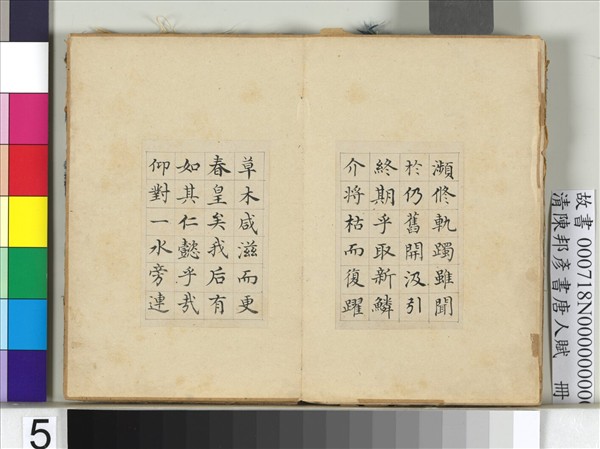 瀕脩軌躅雖聞
於仍舊開汲引
終期乎取新鱗
介將枯而復躍
草木咸滋而更
春皇矣我后有
如其仁懿乎哉
仰對一水旁連
故書 000718N00000000
清陳邦彥書唐人賦 冊
5